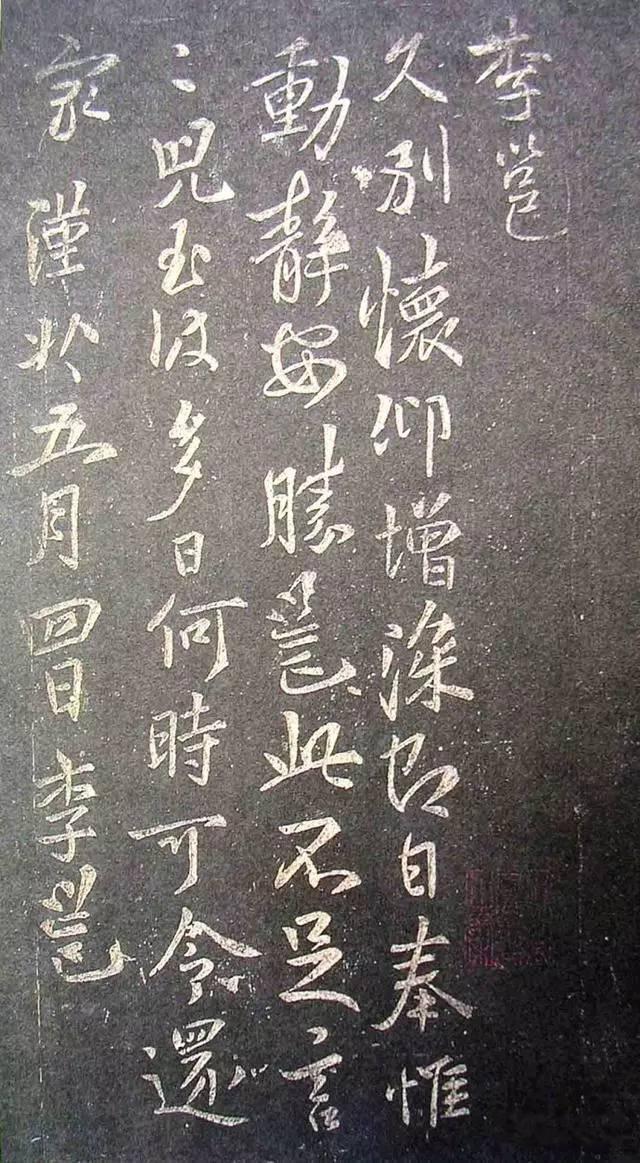 李邕
久別懷仰增深即日奉惟
動靜安勝邕此不足言
〻晃至彼多日何時可令還
家謹狀五月四日李邕